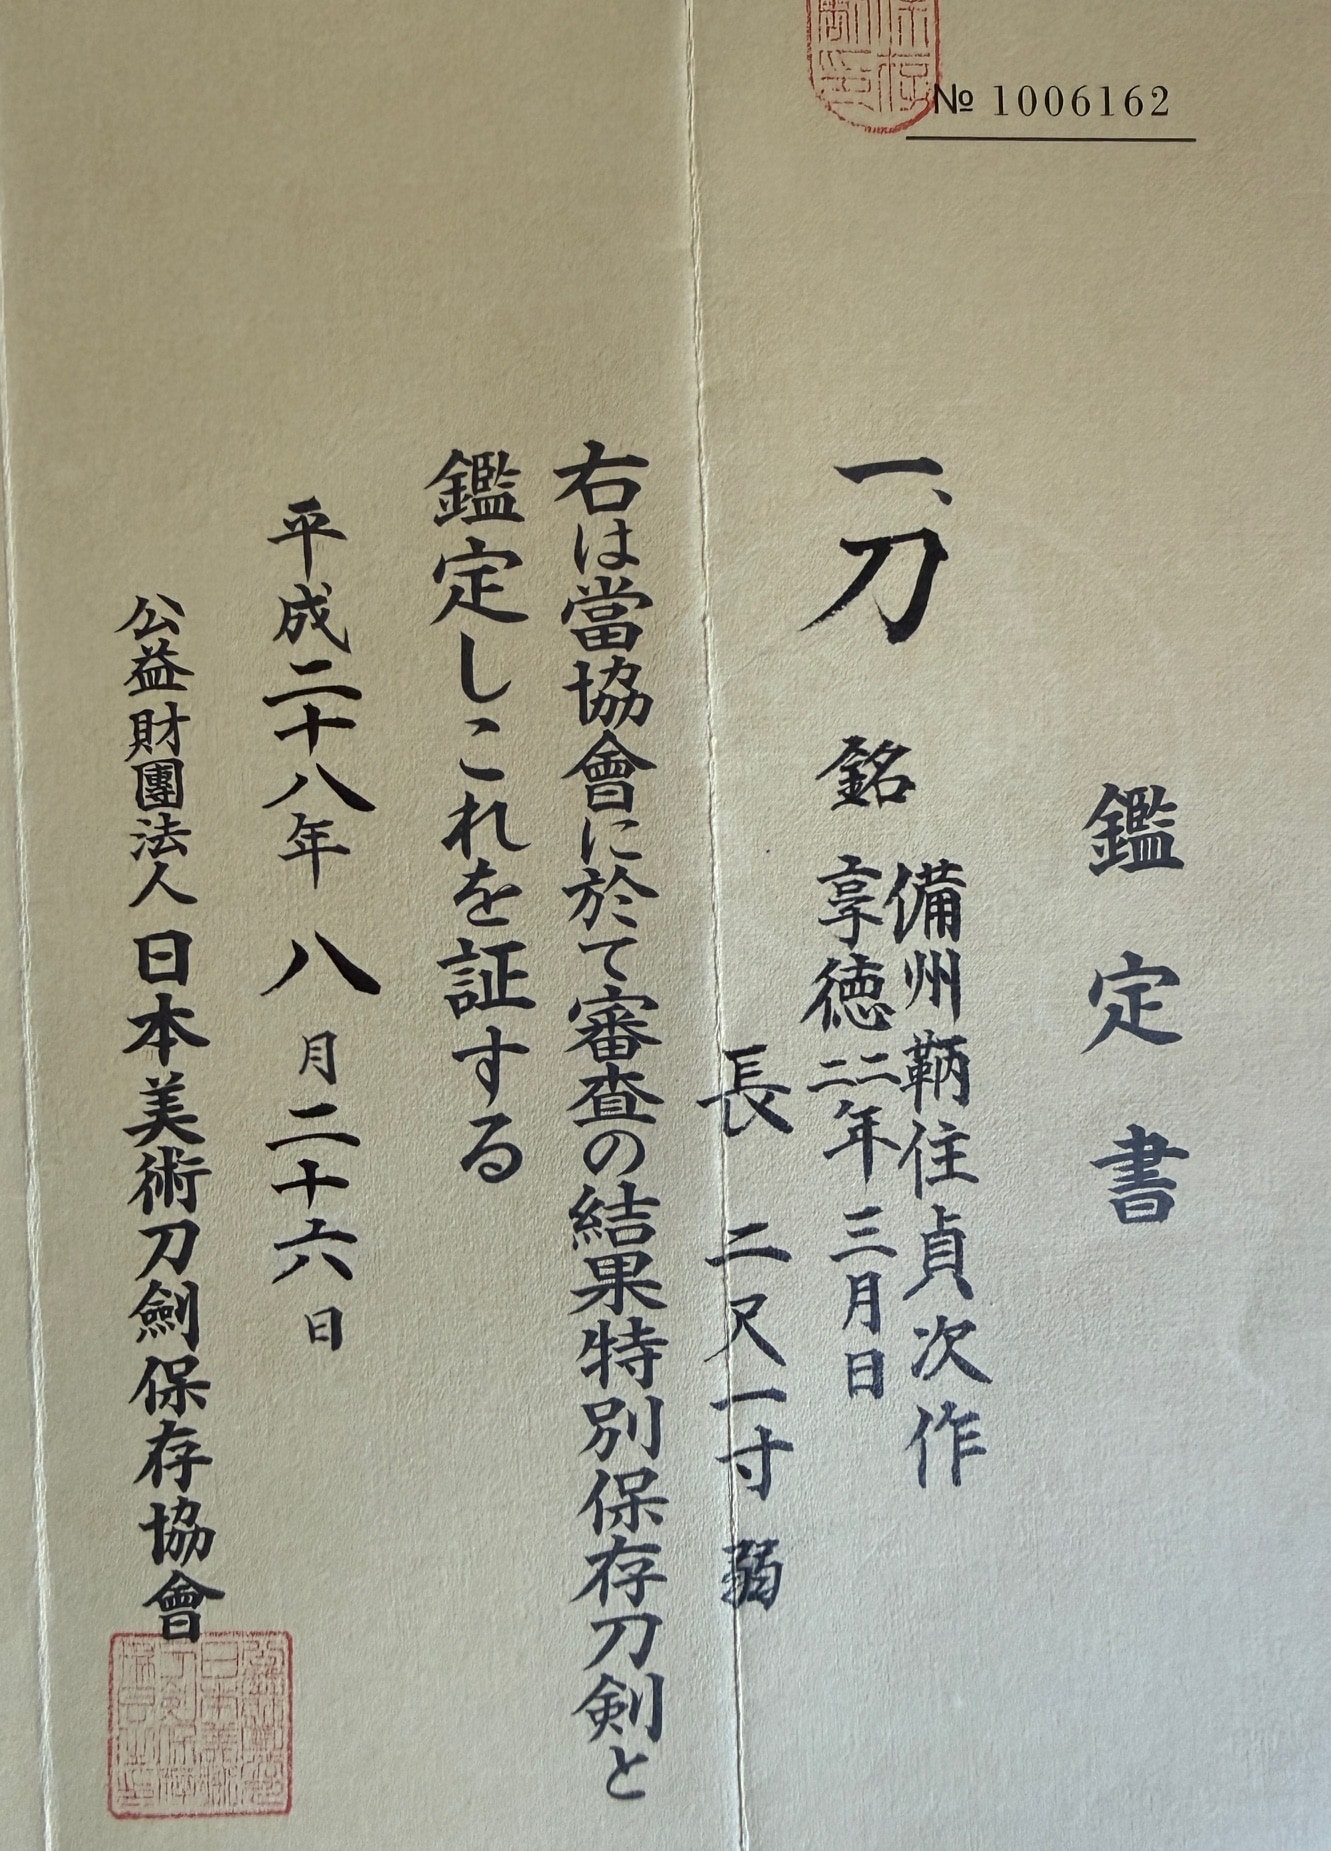 № 1006162
鑑定書
一、刀
銘 備州鞆住貞次作
享徳二二年三月日
長 二尺一寸弱
右は當協會に於て審査の結果特別保存刀剣と
鑑定しこれを証する
平成二十八年 八月二十六日
公益財團法人日本美術刀劍保存協會